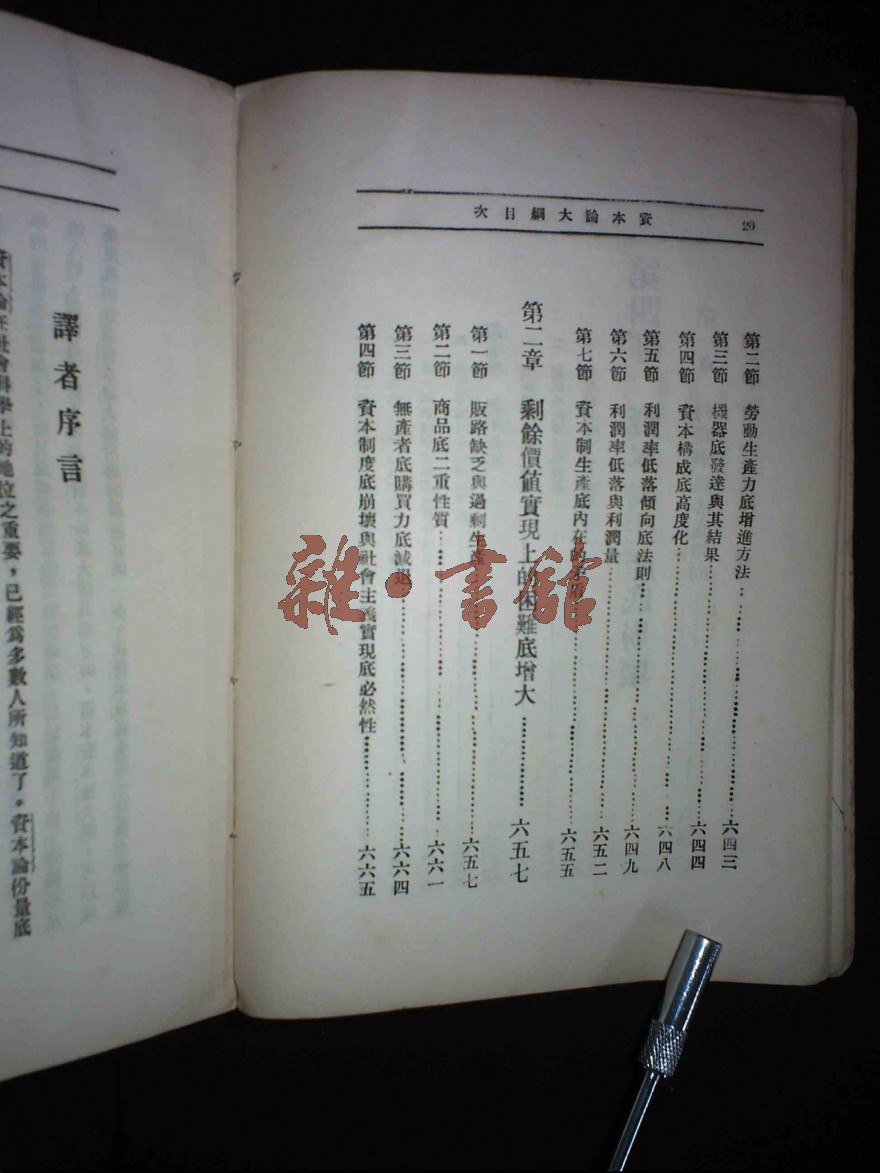 資本論大綱目次
20
第二節 勞動生產力底增進方法……六四三
第三節 機器底發達與其結果……六四四
第四節 資本構成底高度化……六四八
第五節 利潤率低落傾向底法則……六四九
第六節 利潤率低落與利潤量……六五二
第七節 資本制生產底內在的矛盾……六五五
第二章 剩餘價值實現上的困難底增大……六五七
第一節 販路缺乏與過剩生產……六五七
第二節 商品底二重性質……六六一
第三節 無產者底購買力底減退……六六四
第四節 資本制度底崩壞與社會主義實現底必然性……六六五
譯者序言
資本論在社會科學上的地位之重要，已經爲多數人所知道了。資本論份量底
雜·書館